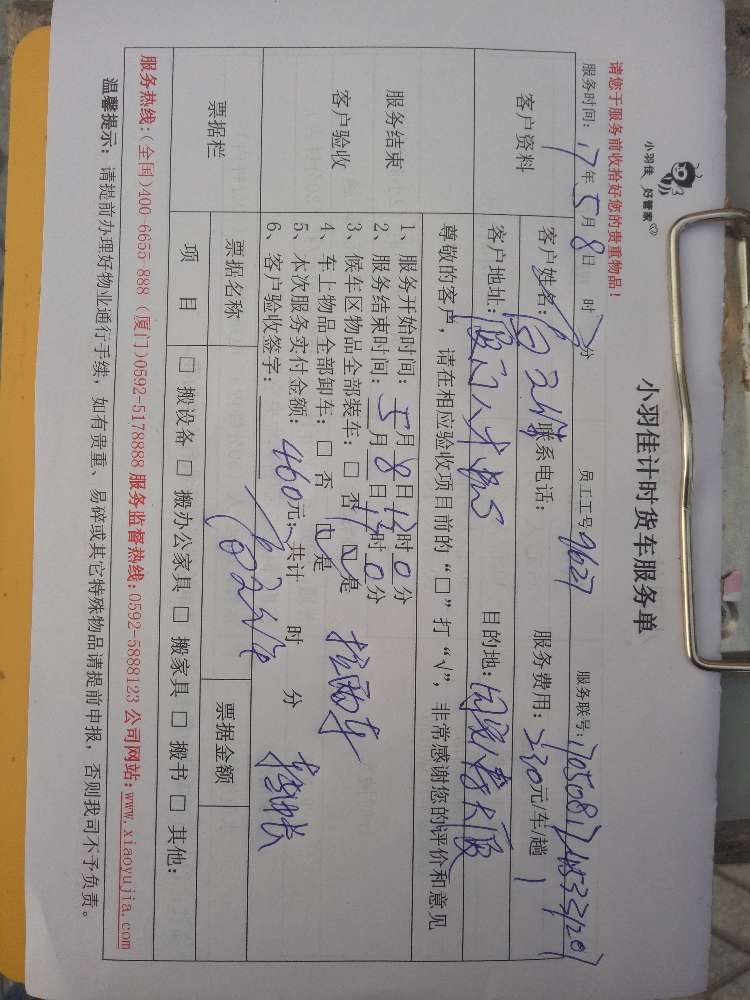 小羽佳 好管家
小羽佳计时货车服务单
请您于服务前收拾好您的贵重物品！
服务时间：17年5月8日 时 分 员工工号9627 服务联号：
客户资料
客户姓名： 联系电话： 服务费用：230元/车/趟
客户地址：厦门 目的地：
尊敬的客户，请在相应验收项目前的“□”打“√”，非常感谢您的评价和意见
服务结束
客户验收
1、服务开始时间：5月8日12时0分
2、服务结束时间：5月8日 时0分
3、候车区物品全部装车：□ 否 □ 是
4、车上物品全部卸车：□ 否 □ 是 拉两车
5、本次服务实付金额：460元；共计 时 分
6、客户验收签字：
票据栏
票据名称 票据金额
项 目 □ 搬设备 □ 搬办公家具 □ 搬家具 □ 搬书 □ 其他：
服务热线：(全国)400-6655-888 (厦门)0592-5178888 服务监督热线：0592-5888123 公司网站：www.xiaoyujia.com
温馨提示：请提前办理好物业通行手续，如有贵重、易碎或其它特殊物品请提前申报，否则我司不予负责。